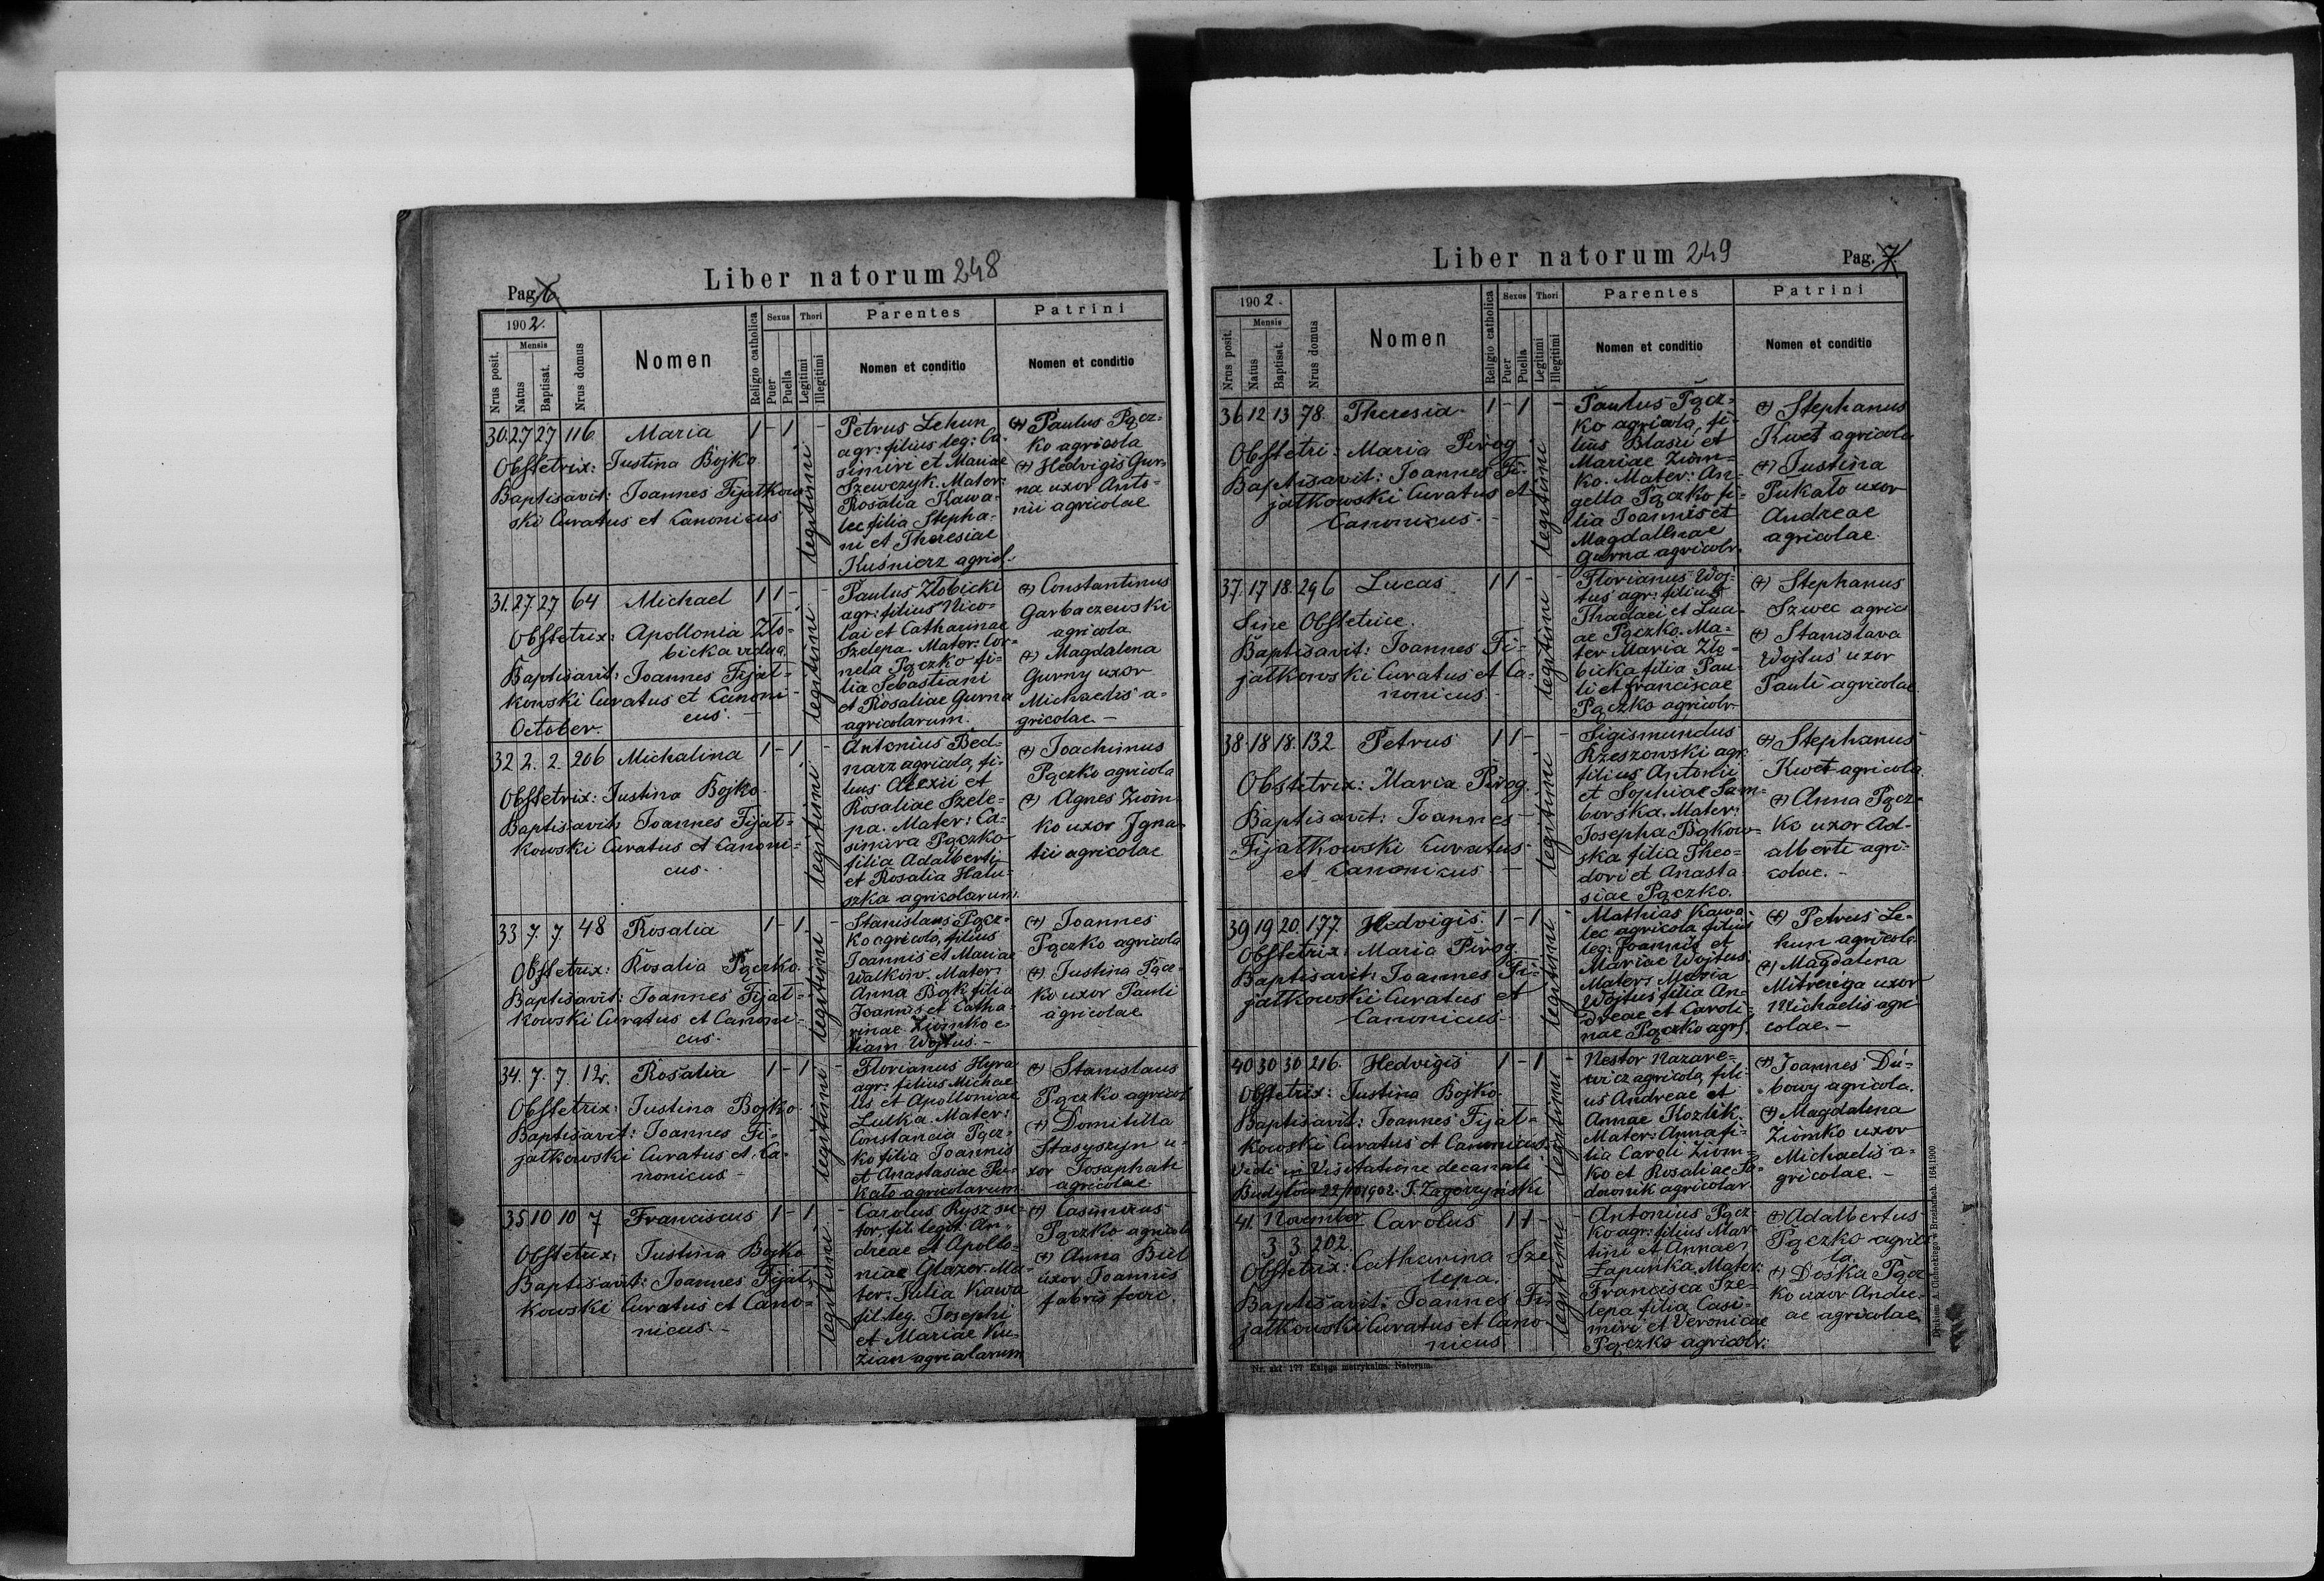 Pag. 6
Liber natorum 248
1902.
Nrus posit.
Mensis
Natus
Baptisat.
Nrus domus
Nomen
Religio catholica
Sexus
Puer
Puella
Thori
Legitimi
Illegitimi
Parentes
Nomen et conditio
Patrini
Nomen et conditio
30. 27 27 116 Maria 1 - 1 -
Obstetrix: Justina Bojko
Baptisavit: Joannes Fijałkow-
ski Curatus et Canonicus
legitimi
Petrus Lehun
agr: filius leg: Ca-
simiri et Mariae
Szewczyk. Mater:
Rosalia Kawa-
lec filia Stepha-
ni et Theresiae
Kuśnierz agricol.
(+) Paulus Pącz-
ko agricola
(+) Hedvigis Gur-
na uxor Anto-
nii agricolae
31. 27 27 64 Michael 1 1 - -
Obstetrix: Apollonia Zło-
bicka vidua
Baptisavit: Joannes Fijał-
kowski Curatus et Canoni-
cus. -
October.
legitimi
Paulus Złobicki
agr: filius Nico-
lai et Catharinae
Szelepa. Mater: Cor-
nela Pączko fi-
lia Sebastiani
et Rosaliae Gurna
agricolarum.
(+) Constantinus
Garbaczewski
agricola
(+) Magdalena
Gurny uxor
Michaelis a-
gricolae. -
32 2. 2. 206 Michalina 1 - 1 -
Obstetrix: Justina Bojko.
Baptisavit: Joannes Fijał-
kowski Curatus et Canoni-
cus.
legitimi
Antonius Bed-
narz agricola, fi-
lius Alexii et
Rosaliae Szele-
pa. Mater: Ca-
simira Pączko
filia Adalberti
et Rosalia Halu-
szka agricolarum.
(+) Joachimus
Pączko agricola
(+) Agnes Ziom-
ko uxor Igna-
tii agricolae
33 7. 7. 48 Rosalia 1 - 1. -
Obstetrix: Rosalia Pączko
Baptisavit: Joannes Fijał-
kowski Curatus et Canoni-
cus.
legitimi
Stanislaus Pącz-
ko agricola, filius
Joannis et Mariae
Walków. Mater:
Anna Bąk filia
Joannis et Catha-
rinae Ziomko e-
tiam Wojtus. -
(+) Joannes
Pączko agricola
(+) Justina Pącz-
ko uxor Pauli
agricolae
34. 7. 7. 12. Rosalia 1 - 1 -
Obstetrix: Justina Bojko
Baptisavit: Joannes Fi-
jałkowski Curatus et Ca-
nonicus -
legitimi
Florianus Hyra
agr: filius Michae-
lis et Apolloniae
Lulka. Mater:
Constancia Pącz-
ko filia Joannis
et Anastasiae Pu-
kało agricolarum
(+) Stanislaus
Pączko agricol
(+) Domitilla
Stasyszyn u-
xor Josaphati
agricolae
35 10 10 7 Franciscus 1 - 1. -
Obstetrix: Justina Bojko
Baptisavit: Joannes Fijał-
kowski Curatus et Cano-
nicus. -
legitimi
Carolus Rysz su-
tor, fil. legit. An-
dreae et Apollo-
niae Glazer. Ma-
ter: Julia Kawa
fil. leg. Josephi
et Mariae Ku-
zian agricolarum
(+) Casimirus
Pączko agricola
(+) Anna Biel
uxor Joannis
fabris
Liber natorum 249
Pag. 7
1902.
Nrus posit.
Mensis
Natus
Baptisat.
Nrus domus
Nomen
Religio catholica
Sexus
Puer
Puella
Thori
Legitimi
Illegitimi
Parentes
Nomen et conditio
Patrini
Nomen et conditio
36 12 13 78. Theresia. 1 - 1 -
Obstetri: Maria Pirog
Baptisavit: Joannes Fi-
jałkowski Curatus et
Canonicus. -
legitimi
Paulus Pącz-
ko agricola, fi-
lius Blasii et
Mariae Ziom-
ko. Mater: An-
gella Pączko fi-
lia Joannis et
Magdalenae
Gurna agricolr.
(+) Stephanus
Kwet agricola
(+) Justina
Pukało uxor
Andreae
agricolae.
37. 17 18. 296 Lucas 1 1 - -
Sine Obstetrice.
Baptisavit: Joannes Fi-
jałkowski Curatus et Ca-
nonicus. -
legitimi
Florianus Woj-
tus agr: filius
Thadaei et Luci-
ae Pączko. Ma-
ter Maria Zło-
bicka filia Pau-
li et Franciscae
Pączko agricolr.
(+) Stephanus
Szwec agric
(+) Stanislava
Wojtus uxor
Pauli agricolae.
38. 18 18. 132 Petrus 1 1 - -
Obstetrix: Maria Pirog.
Baptisavit: Joannes -
Fijałkowski Curatus
et Canonicus -
legitimi
Sigismundus
Rzeszowski agr:
filius Antonii
et Sophiae Sam-
borska. Mater:
Josepha Bąkow-
ska filia Theo-
dori et Anasta-
siae Pączko.
(+) Stephanus
Kwet agricola.
(+) Anna Pącz-
ko uxor Ad-
alberti agri-
colae. -
39 19 20. 177. Hedvigis. 1 - 1 -
Obstetrix: Maria Pirog
Baptisavit: Joannes Fi-
jałkowski Curatus et
Canonicus -
legitimi
Mathias Kawa-
lec agricola filius
leg: Joannis et
Mariae Wojtus.
Mater: Maria
Wojtus filia An-
dreae et Caroli-
nae Pączko agr.
(+) Petrus Le-
hun agricola.
(+) Magdalena
Mitrenga uxor
Michaelis agri-
colae. -
40 30 30 216. Hedvigis 1 - 1 -
Obstetrix: Justina Bojko.
Baptisavit: Joannes Fijał-
kowski Curatus et Canonicus.
Vidi in Visitatione decanali
Budyłów 22/10 1902. J. Zagórzyński
legitimi
Nestor Nazare-
wicz agricola, fili-
us Andreae et
Annae Kozlik.
Mater: Anna fi-
lia Caroli Ziom-
ko et Rosaliae Sa-
downik agricolar
(+) Joannes Du-
bowy agricola.
(+) Magdalena
Ziomko uxor
Michaelis a-
gricolae. -
41. November Carolus 1 1 - -
3 3. 202.
Obstetrix: Catharina Sze-
lepa.
Baptisavit: Joannes Fi-
jałkowski Curatus et Cano-
nicus.
legitimi
Antonius Pącz-
ko agr: filius Mar-
tini et Annae
Łapunka, Mater:
Francisca Sze-
lepa filia Casi-
miri et Veronicae
Pączko agricolr.
(+) Adalbertus
Pączko agrico-
la
(+) Doska Pącz-
ko uxor Andre-
ae agricolae.
Nr. skł. 177 Księga metrykalna. Natorum.